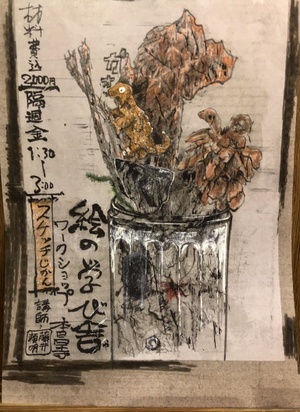 材料費込
2,000円
隔週金
1:30
〜
3:00
スケッチじかん
講師
絵の学び舎
ワークショップ
杏